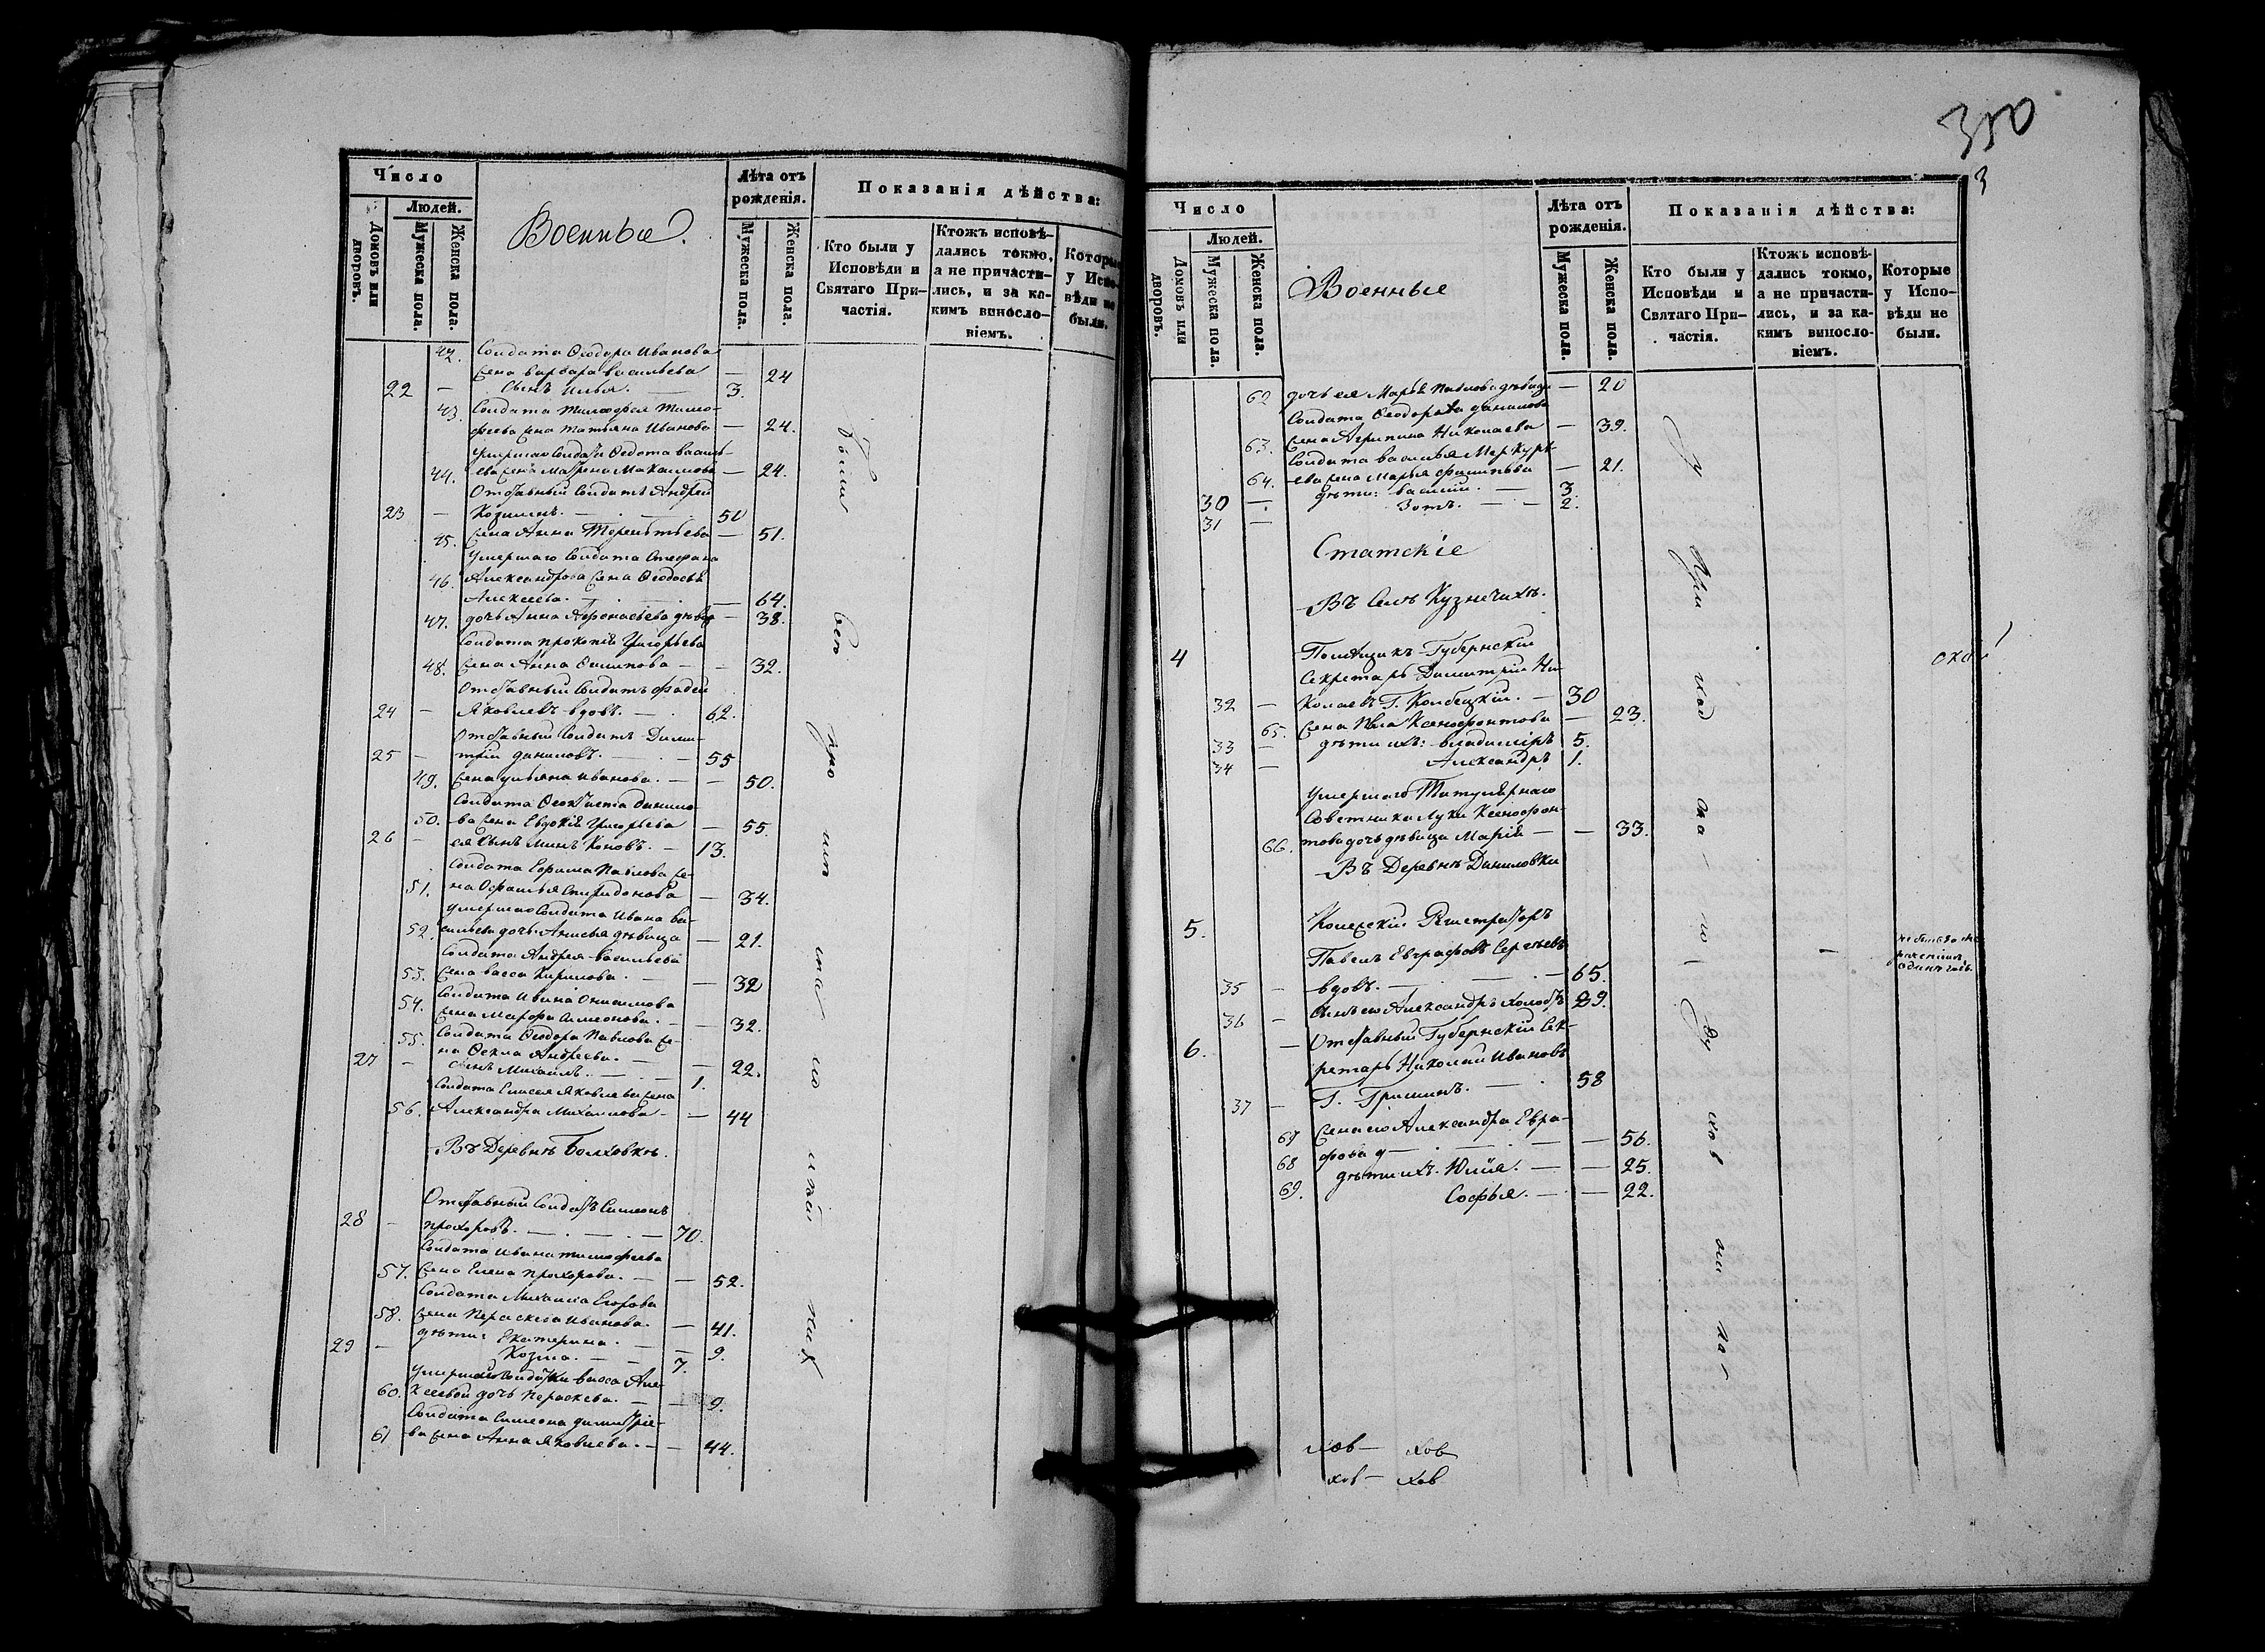 Число
Людей.
Домовъ или дворовъ.
Мужеска пола.
Женска пола.
Военные.
Лѣта отъ рожденія.
Мужеска пола.
Женска пола.
Показанія дѣйства:
Кто были у Исповѣди и Святаго Причастія.
Ктожъ исповѣдались токмо, а не причастились, и за какимъ винословіемъ.
Которые у Исповѣди не были.
42. Солдата Ѳеодора Иванова
жена Варвара Васильева — 24
22 — Сынъ Илья. — 3.
43. Солдата Тимофея Тимо-
феева жена Татьяна Иванова — 24.
Умершаго Солдата Ѳедота Василь-
44. ева жена Матрена Максимова — 24.
Отставный Солдатъ Андрей
23 — Козминъ. — 50
45. жена Анна Терентьева — 51.
Умершаго Солдата Стефана
46. Александрова жена Ѳеодосья
Алексеева. — 64.
47. дочь Анна Афонасьева дѣвица — 38.
Солдата Прокопія Григорьева
48. жена Анна Осипова — 32.
Отставный Солдатъ Фадей
24 — Яковлевъ вдовъ. — 62.
Отставный Солдатъ Дими-
25 — трій Даниловъ. — 55
49. жена Ульяна Иванова. — 50.
Солдата Ѳеоктиста Данило-
50. ва жена Евдокія Григорьева — 55.
26 — ея сынъ Минъ Коновъ. — 13.
Солдата Ефима Павлова же-
51. на Ефимья Спиридонова — 34.
умершаго Солдата Ивана Ва-
52. сильева дочь Анисья дѣвица — 21.
Солдата Андрея Васильева
53. жена Васса Кирилова. — 32
Солдата Ивана Онисимова
54. жена Марфа Симеонова. — 32.
55. Солдата Ѳеодора Павлова же-
на Ѳекла Андреева. — 22.
27 — сынъ Михаилъ. — 1.
Солдата Елисея Яковлева жена
56. Александра Михаилова — 44
Въ Деревнѣ Болховкѣ.
Отставный Солдатъ Симеонъ
28 — Прохоровъ. — 70.
Солдата Ивана Тимофеева
57. жена Елена Прохорова. — 52.
Солдата Михаила Егорова
58. жена Параскева Иванова. — 41.
дѣти: Екатерина. — 9.
29 — Козма. — 7.
Умершей Солдатки Вассы Але-
60. ксеевой дочь Параскева. — 9.
Солдата Симеона Димитріе-
61 ва жена Анна Яковлева. — 44.
были
350
3
Число
Людей.
Домовъ или дворовъ.
Мужеска пола.
Женска пола.
Военные
Лѣта отъ рожденія.
Мужеска пола.
Женска пола.
Показанія дѣйства:
Кто были у Исповѣди и Святаго Причастія.
Ктожъ исповѣдались токмо, а не причастились, и за какимъ винословіемъ.
Которые у Исповѣди не были.
62 дочь ея Марья Павлова дѣвица — 20
Солдата Ѳеодора Данилова
63. жена Агрипина Николаева — 39.
Солдата Василья Меркурь-
64. ева жена Марья Филипьева — 21.
30 — дѣти: Василій. — 3.
31 — Зотъ. — 2.
Статскіе
Въ Селѣ Кузнечихѣ.
4 Помѣщикъ Губернскій
Секретарь Димитрій Ни-
32 — колаевъ Г. Колбецкій. — 30
65. жена Ксенофонтова — 23.
33 — дѣти ихъ: Владиміръ 5.
34 — Александръ 1.
Умершаго Титулярнаго
Советника Луки Ксенофон-
66. това дочь дѣвица Марія — 33.
Въ Деревнѣ Даниловки
5. Колежскій Регистраторъ
Павелъ Евграфовъ Сергѣевъ
35 — вдовъ. — 65.
36 — Сынъ его Александръ холостъ 29.
6. — Отставный Губернскій Сек-
ретарь Николай Ивановъ
37 — Г. Гришинъ. — 58
67 жена его Александра Евгра-
фова — 56.
68 дѣти ихъ: Юлія. — 25.
69. Софья. — 22.
у
При
ход
ска
го
ду
хов
ни
ка
хов — хов
хов — хов